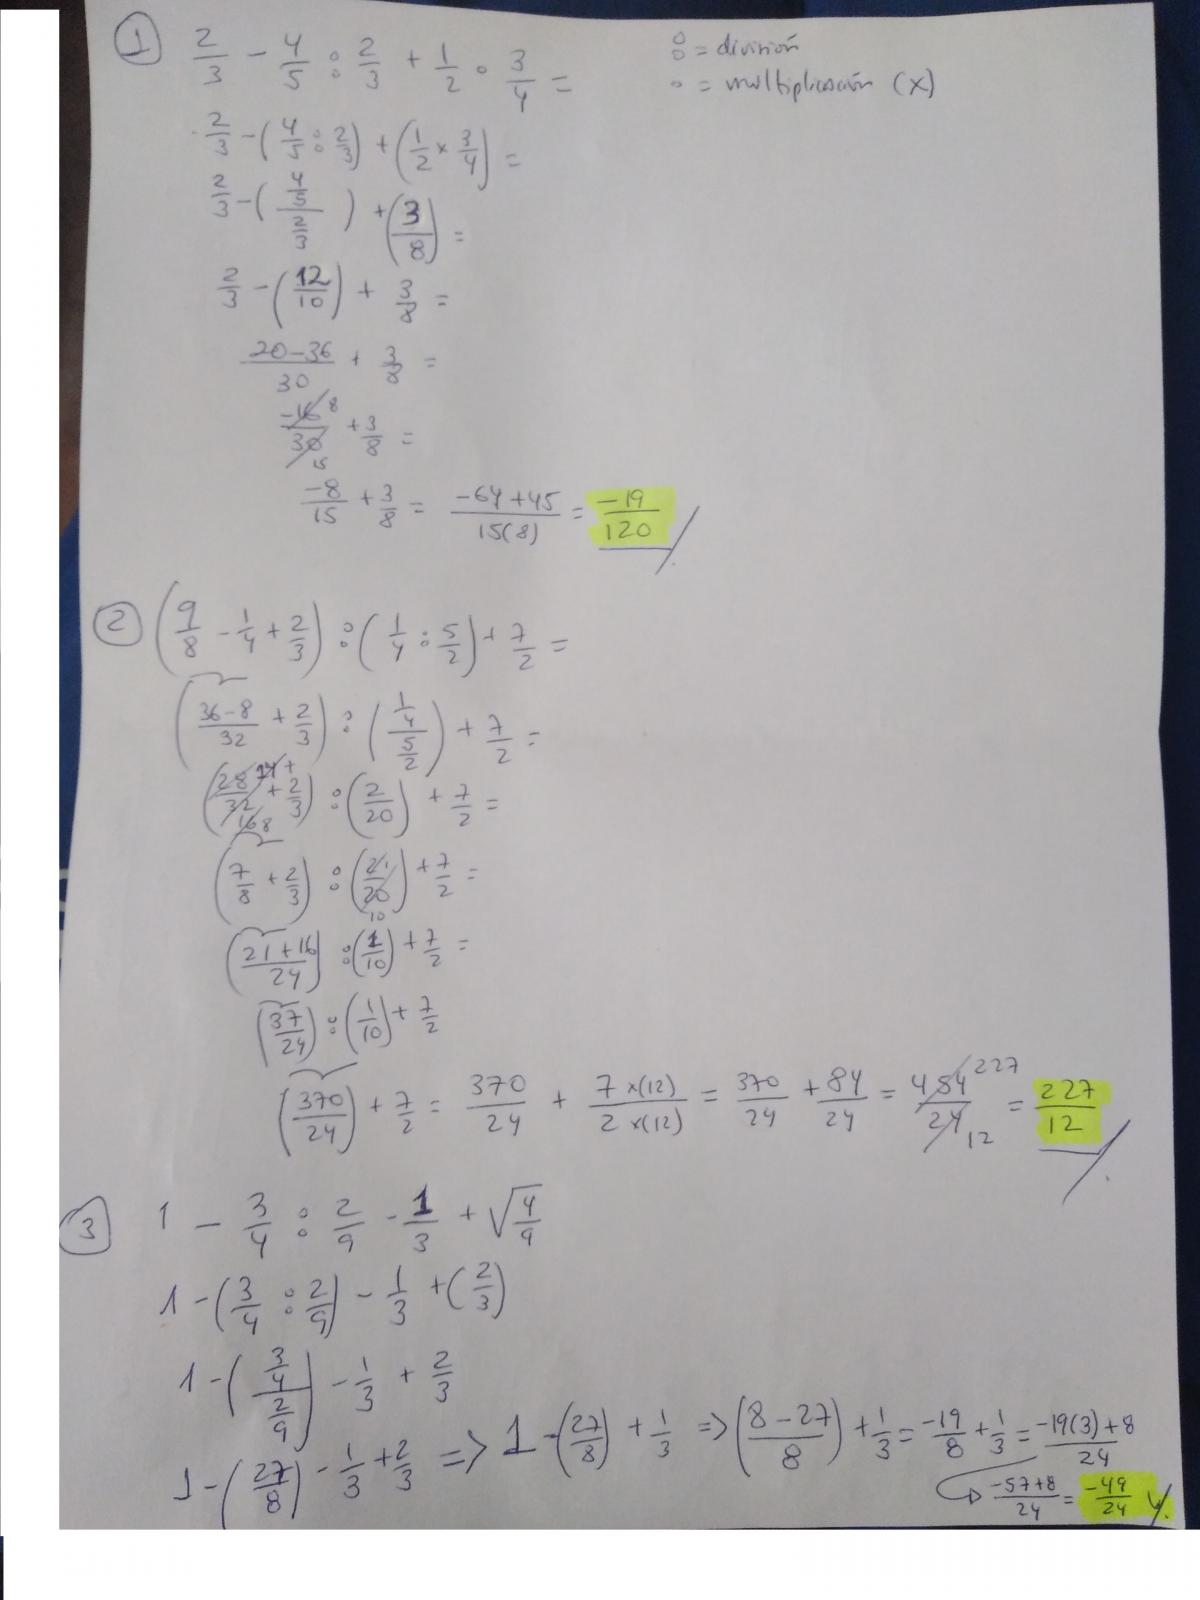 ① 2/3 - 4/5 : 2/3 + 1/2 · 3/4 =
: = división
· = multiplicación (x)
2/3 - (4/5 : 2/3) + (1/2 x 3/4) =
2/3 - ((4/5)/(2/3)) + (3/8) =
2/3 - (12/10) + 3/8 =
(20-36)/30 + 3/8 =
-16/30 8 15 + 3/8 =
-8/15 + 3/8 = (-64+45)/15(8) = -19/120
② (9/8 - 1/4 + 2/3) : (1/4 : 5/2) + 7/2 =
((36-8)/32 + 2/3) : ((1/4)/(5/2)) + 7/2 =
(28/32 14/16 7/8 + 2/3) : (2/20) + 7/2 =
(7/8 + 2/3) : (2/20 1/10) + 7/2 =
((21+16)/24) : (1/10) + 7/2 =
(37/24) : (1/10) + 7/2
(370/24) + 7/2 = 370/24 + 7x(12)/2x(12) = 370/24 + 84/24 = 454/24 227/12 = 227/12
③ 1 - 3/4 : 2/9 - 1/3 + √4/9
1 - (3/4 : 2/9) - 1/3 + (2/3)
1 - ((3/4)/(2/9)) - 1/3 + 2/3
1 - (27/8) - 1/3 + 2/3 => 1 - (27/8) + 1/3 => ((8-27)/8) + 1/3 = -19/8 + 1/3 = (-19(3)+8)/24
(-57+8)/24 = -49/24